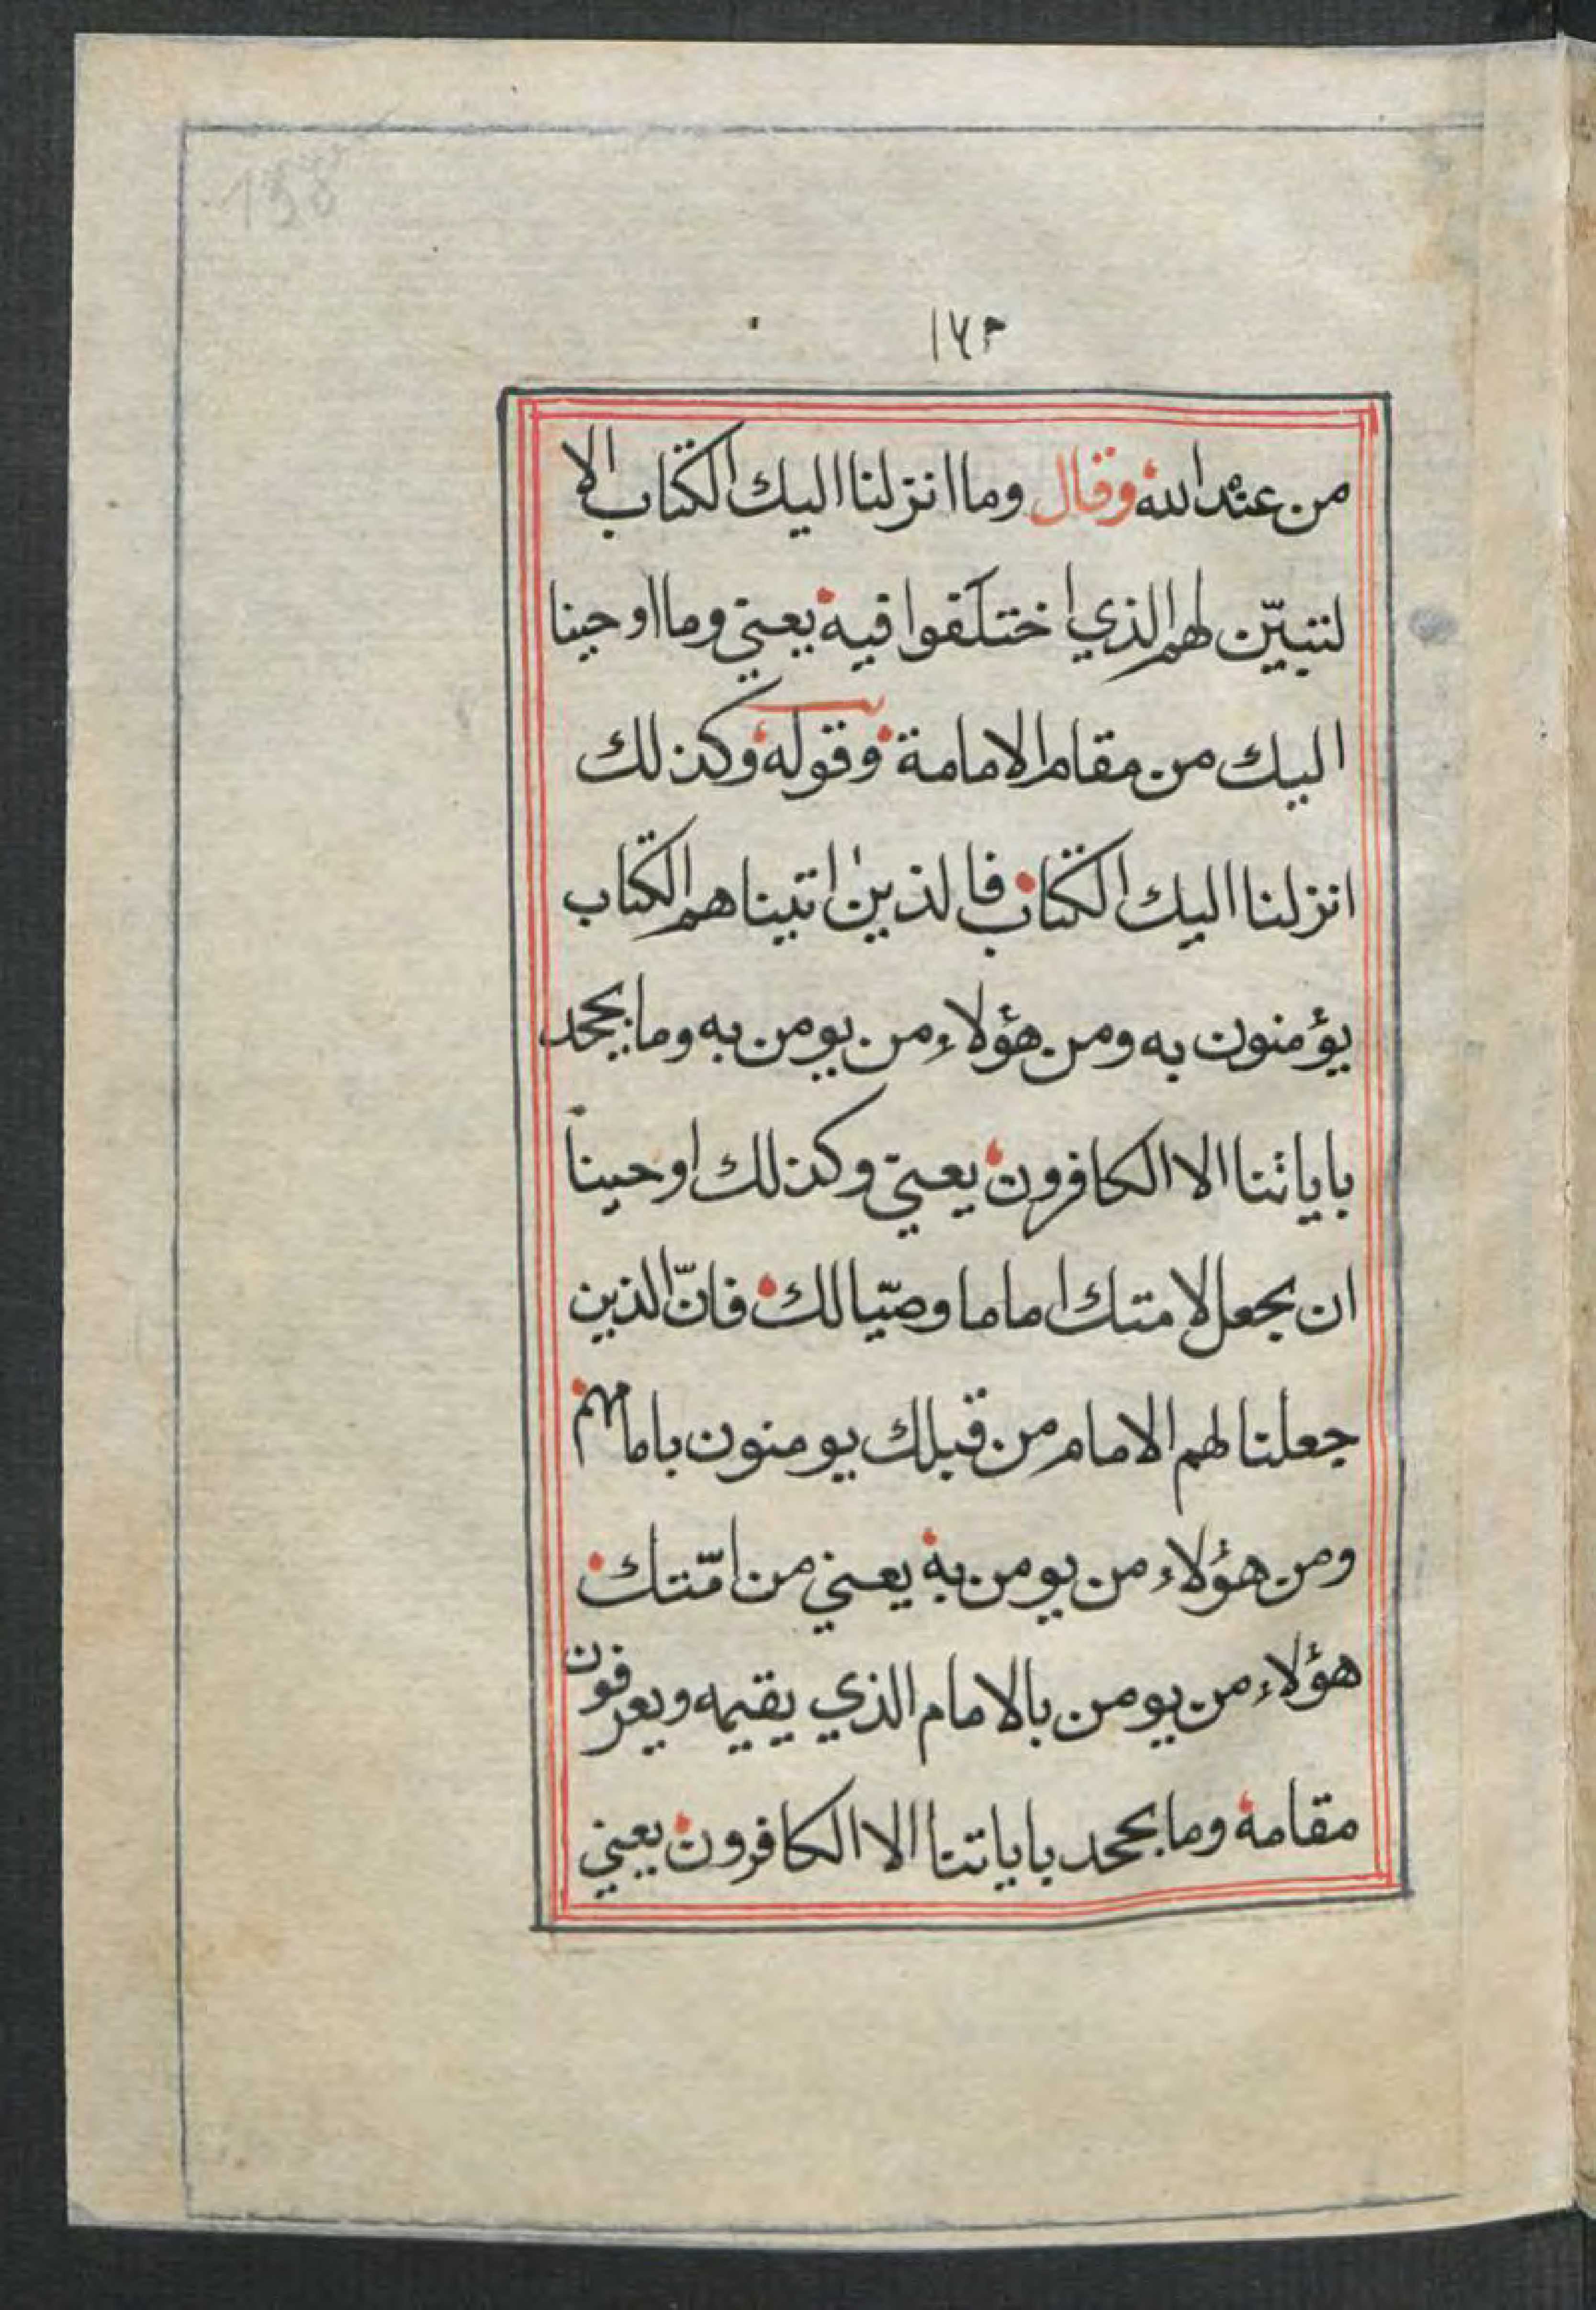 158
من عند الله وقال وما انزلنا اليك الكتاب الا
لتتبيّن لهم الذي اختلفوا فيه يعني وما اوحينا
اليك من مقام الامامة وقوله وكذلك
انزلنا اليك الكتاب فالذين اتيناهم الكتاب
يؤمنون به ومن هؤلاء من يومن به وما يجحد
باياتنا الا الكافرون يعني وكذلك اوحينا
ان يجعل لامتك اماما وصيّا لك فانّ الذين
جعلنا لهم الامام من قبلك يومنون بامامهم
ومن هؤلاء من يومن به يعني من امّتك
هؤلاء من يومن بالامام الذي يقيمه ويعرفون
مقامه وما يجحد باياتنا الا الكافرون يعني